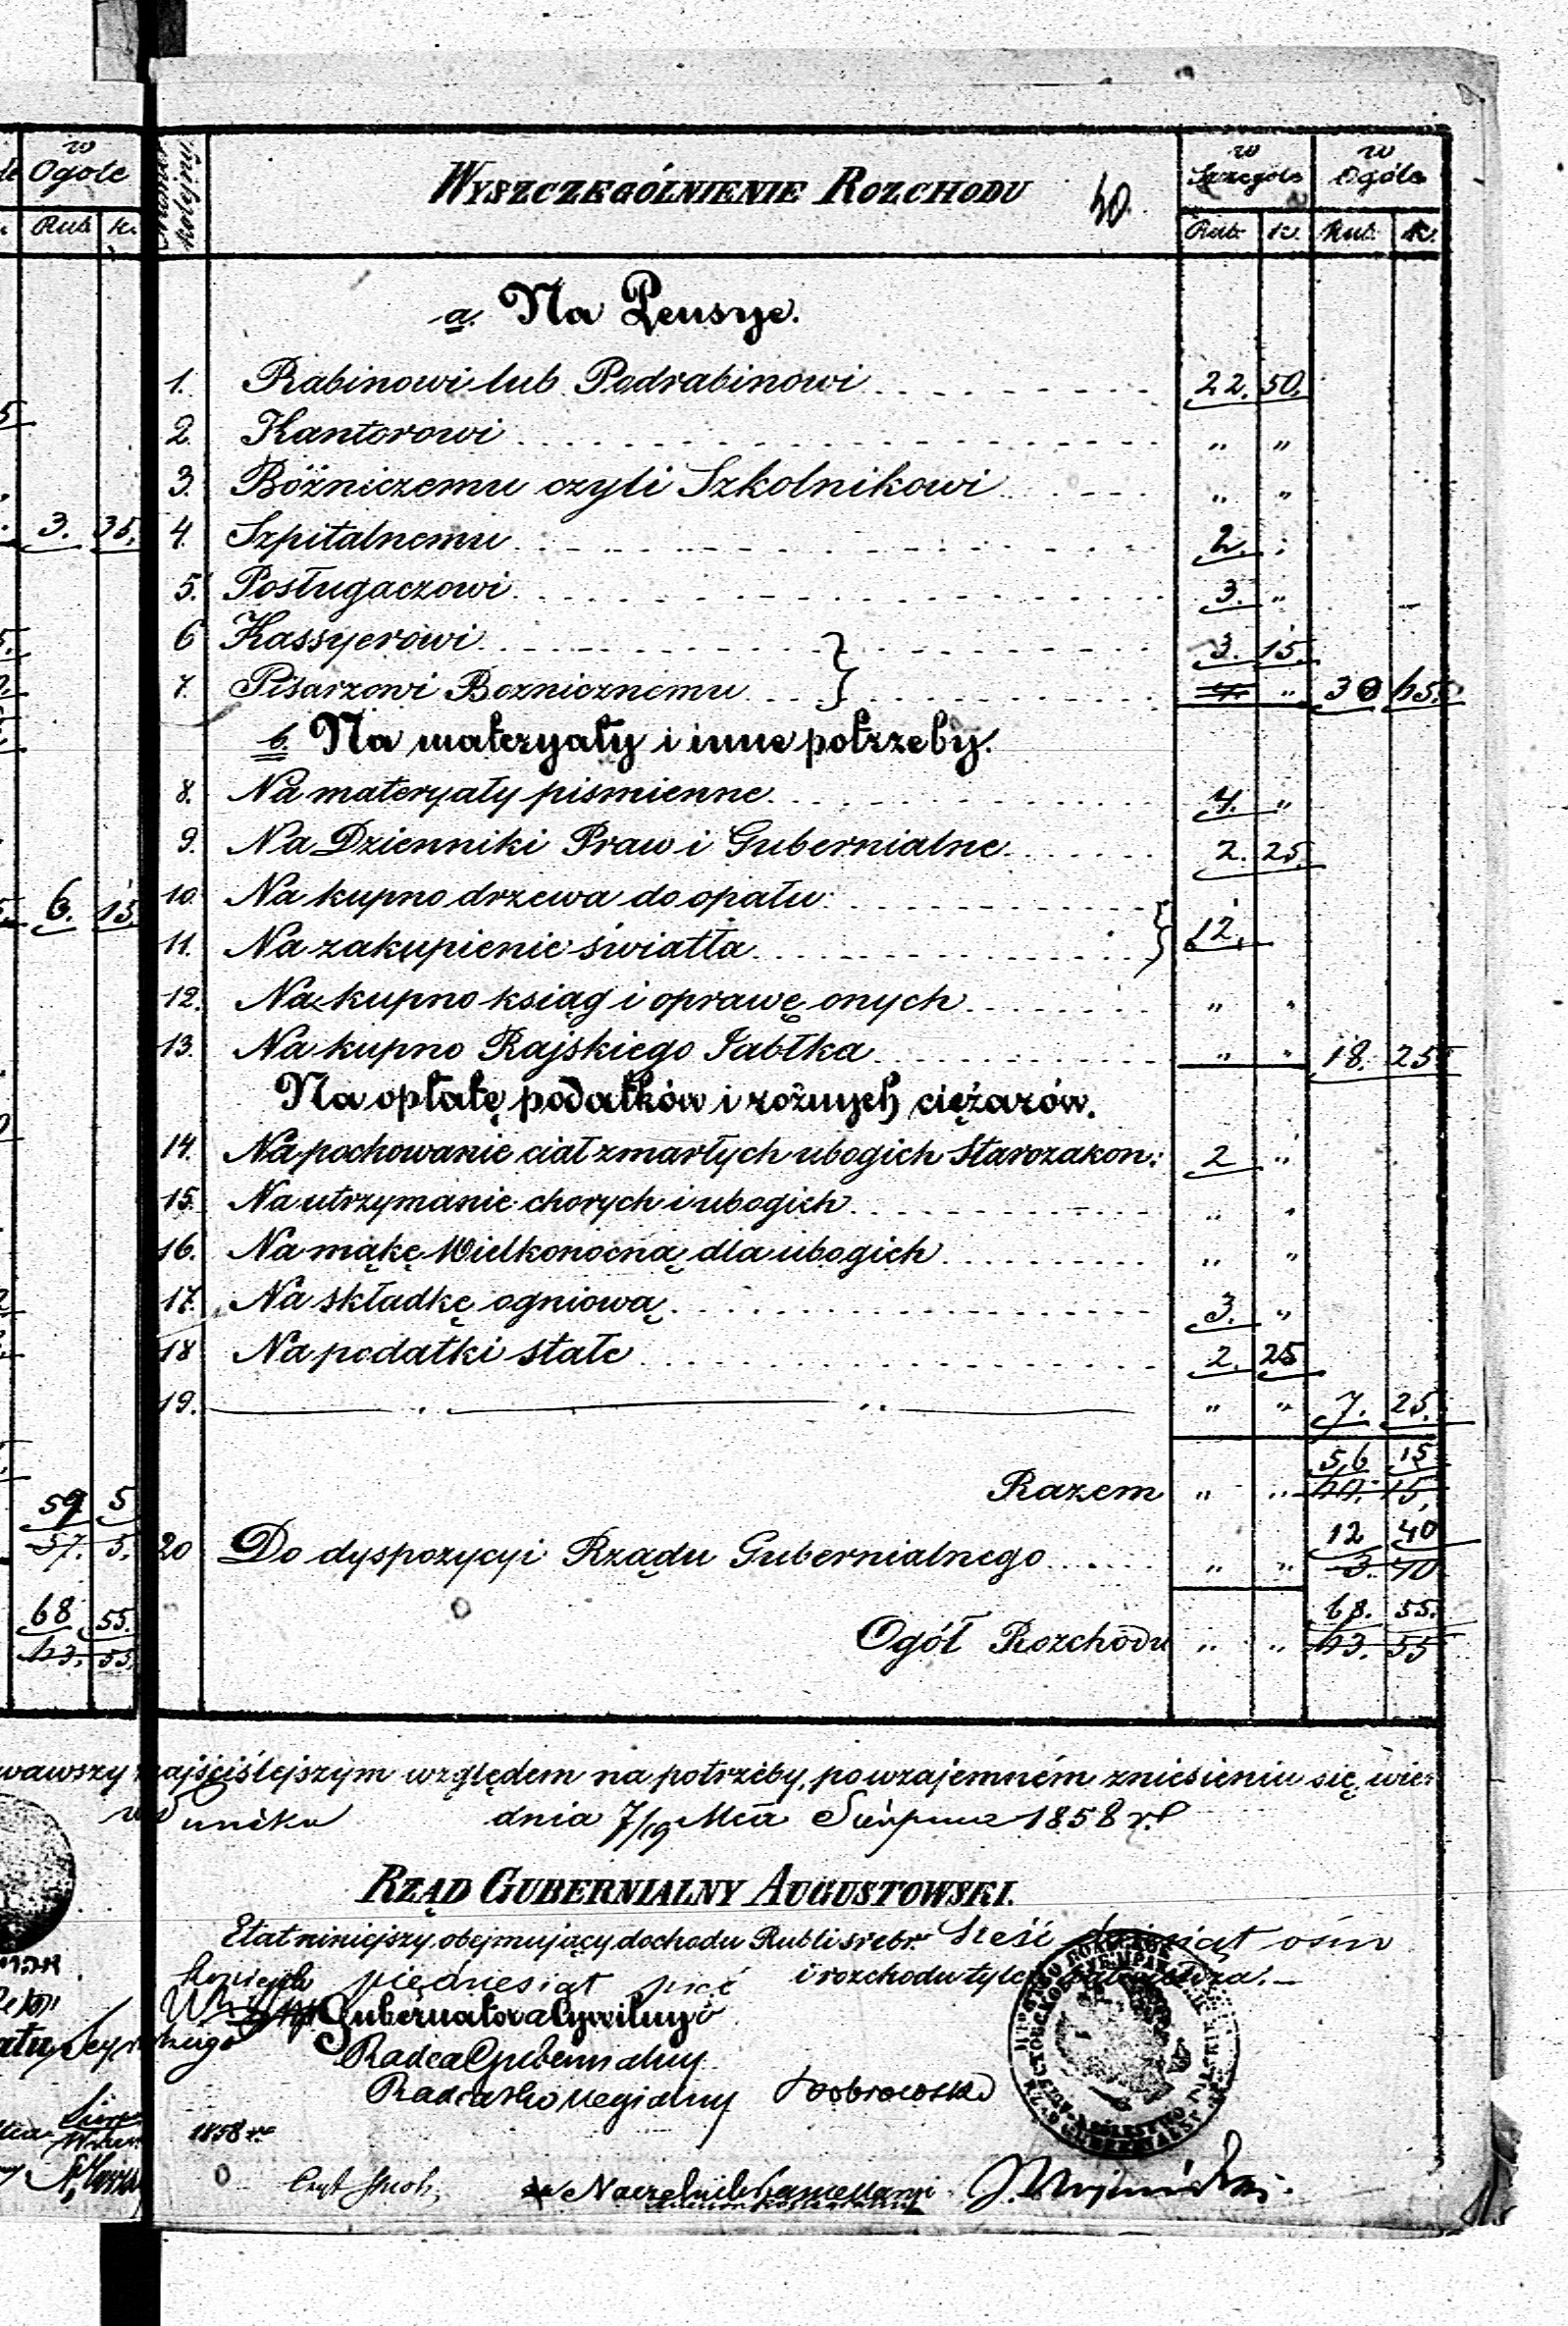 w Ogóle
Rub. k.
5
3. 35.
6. 15.
59 5
57. 5.
68 55.
63. 55.
Numer kolejny
WYSZCZEGÓLNIENIE ROZCHODU
w Szczególe
w Ogóle
Rub. k. Rub. k.
a. Na Pensye.
1. Rabinowi lub Podrabinowi 22. 50.
2. Kantorowi " "
3. Bóżniczemu czyli Szkolnikowi " "
4. Szpitalnemu 2. "
5. Posługaczowi 3. "
6 Kassyerowi 3. 15.
7. Pisarzowi Boznicznemu } " 30 65.
b. Na materyały i inne potrzeby.
8. Na materyały piśmienne 4. "
9. Na Dzienniki Praw i Gubernialne 2. 25.
10. Na kupno drzewa do opału
11. Na zakupienie światła } 12.
12. Na kupno ksiąg i oprawę onych " "
13. Na kupno Rajskiego Jabłka " " 18. 25
Na opłatę podatków i różnych ciężarów.
14. Na pochowanie ciał zmarłych ubogich Starozakon: 2 "
15. Na utrzymanie chorych i ubogich " "
16. Na mąkę Wielkonocną dla ubogich " "
17. Na składkę ogniową 3. "
18 Na podatki stałe 2. 25
19. " " " " 7. 25.
56 15
Razem " " 15.
12 40
20 Do dyspozycyi Rządu Gubernialnego " " 3. 40
68. 55.
Ogół Rozchodu " " 63. 55
wawszy najściślejszym względem na potrzeby, po wzajemném zniesieniu się, wie:
w Puńsku dnia 7/19 Mca Sierpnia 1858 r.
RZĄD GUBERNIALNY AUGUSTOWSKI.
Etat niniejszy, obejmujący dochodu Rubli srebr. Sześćdziesiąt ośm
kopiejek pięćdziesiąt pięć i rozchodu tyleż zatwierdza.
Gubernator Cywilny
Radca Gubernialny
Radca Kollegialny Dobrowolski
1858 r.
Naczelnik Kancellaryi